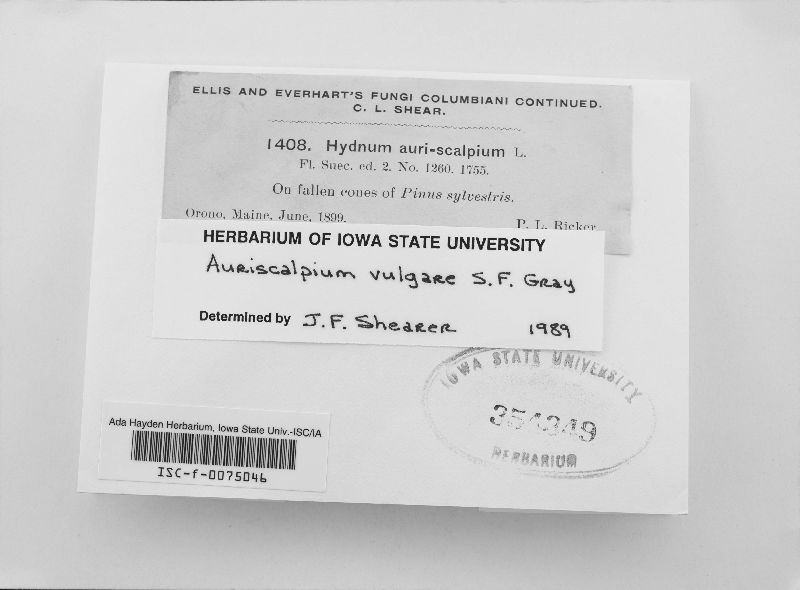 ELLIS AND EVERHART'S FUNGI COLUMBIANI CONTINUED.
C. L. SHEAR.
1408. Hydnum auri-scalpium L.
Fl. Suec. ed. 2. No. 1260. 1755.
On fallen cones of Pinus sylvestris.
Orono, Maine, June, 1899.
P. L. Ricker
HERBARIUM OF IOWA STATE UNIVERSITY
Auriscalpium vulgare S.F. Gray
Determined by J.F. Shearer 1989
IOWA STATE UNIVERSITY
354349
HERBARIUM
Ada Hayden Herbarium, Iowa State Univ.-ISC/IA
ISC-f-0075046